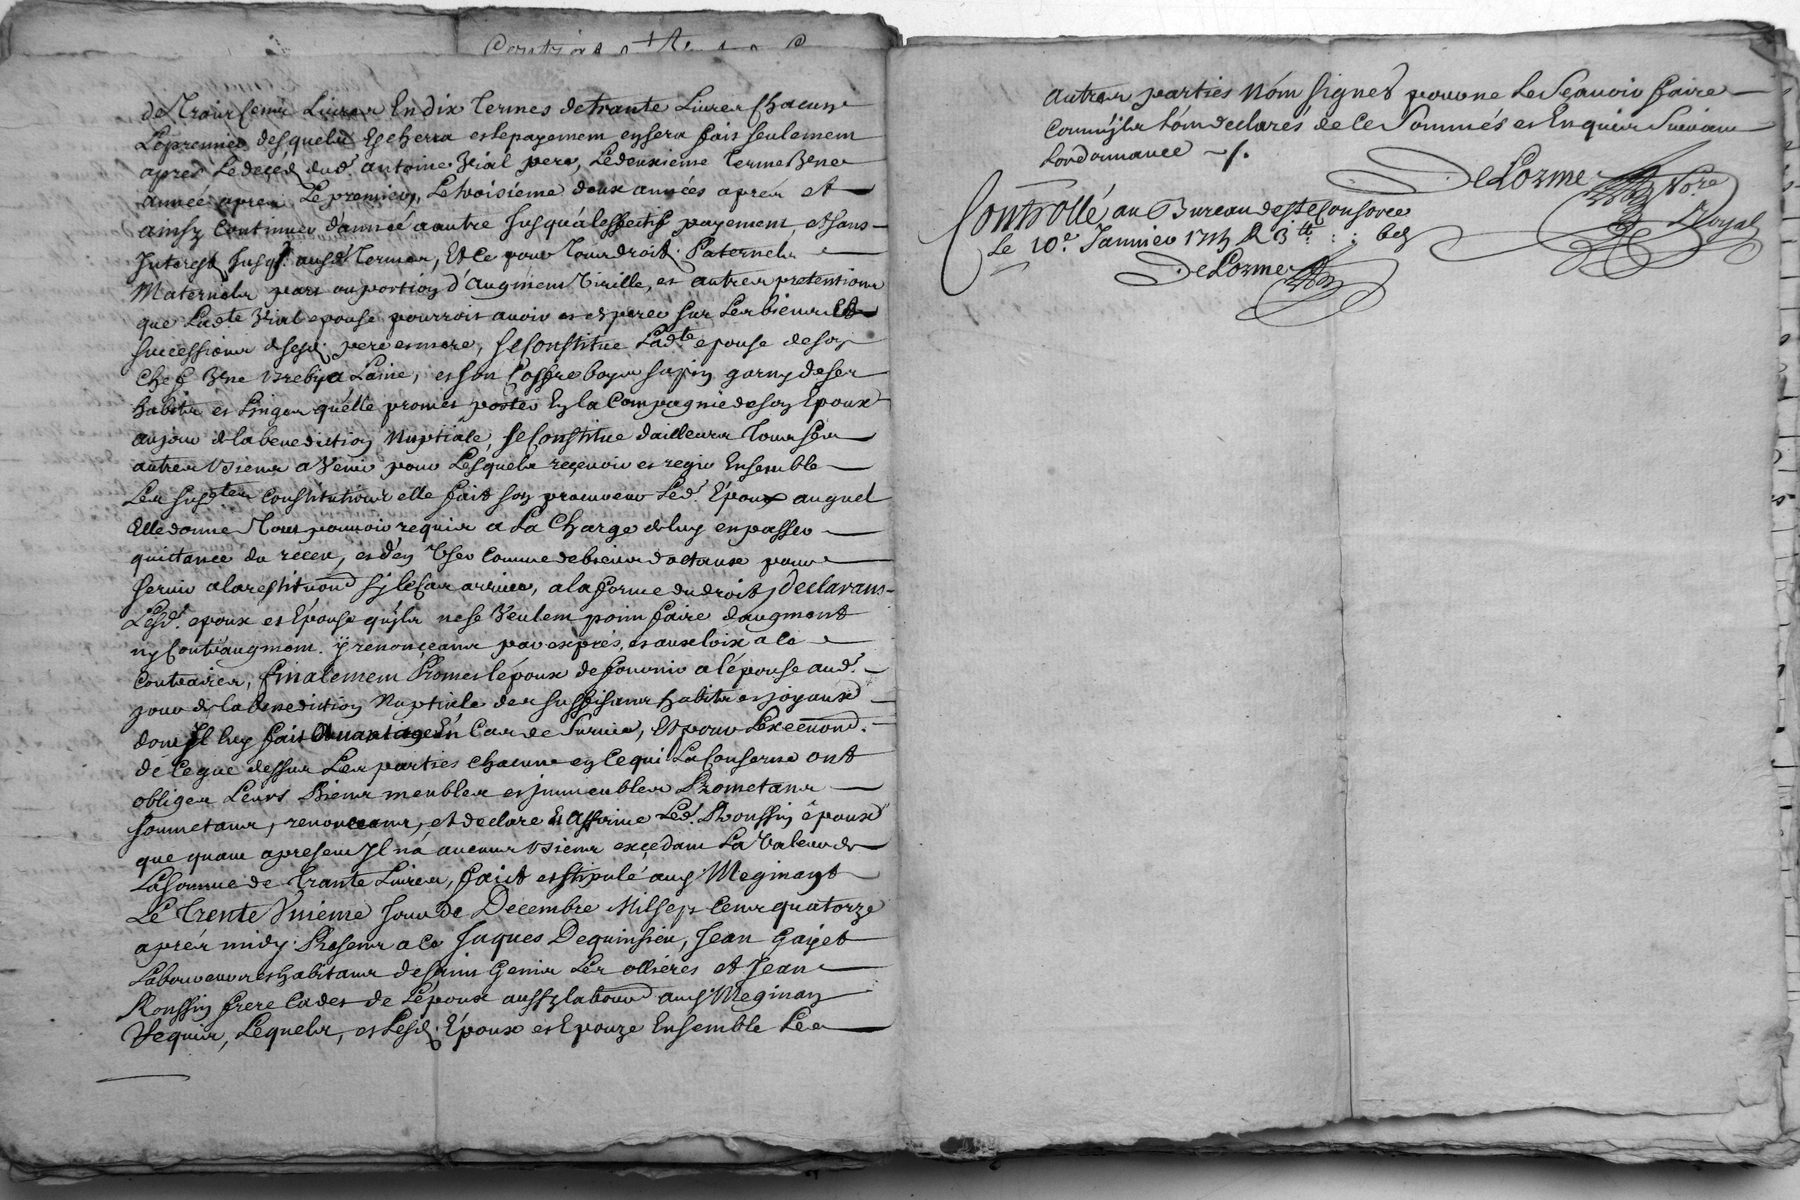 de Trois Cens Livres En dix Termes de trante Livres Chacun
Le premier desquels Escherra et le payement en sera fait seulement
apres Le deced dud. antoine Vial pere, Le deuxieme Terme Vne
année apres Le premier, Le troisieme deux années apres et
ainsy Continuer d'année a autre Jusqu'a l'effectif payement, et sans
Interest Jusq. ausd. Termes, Et Ce pour Tous droits Paternels
Maternels part ou portion d'augment Virille, et autres pretentions
que Ladte Vial epouse pourroit avoir et esperer sur Les biens Et
successions de sesd. pere et mere, Se Constitue Ladte epouse de son
Chef Vne brebis a Laine, et son Coffre boys sapin garny de ses
habits et Linges qu'elle promet porter En la Compagnie de son Epoux
au jour de la benediction Nuptiale, Se Constitue d'ailleurs Tous ses
autres biens a Venir pour Lesquels reçevoir et regir Ensemble
Les susdtes Constitutions elle fait son procureur Led. Epoux auquel
Elle donne Tous pouvoir requis a La Charge de luy en passer
quittance du receu, et d'en Vser Comme de biens dotaux pour
servir a la restituond sy le Cas arrive, a la forme du droit, Declarans
Lesd. epoux et Epouse qu'jls ne se Veulent point faire d'augment
ny Contr'augment. ÿ renonçeant par exprés, et aux loix a ce
Contraires, finalement Promet l'époux de fournir a l'épouse aud.
jour de la benediction Nuptiele des suffisans habits et joyaux
dont Jl luy fait En Cas de Survie, Et pour L'execuond.
de Ce que dessus Les parties Chacune en Ce qui La Conserne ont
obliges Leurs Biens meubles et jmmeubles Prometans
soumetans, renonceans, et declare Et Affirme Led. Roussin époux
que quant apresent Jl n'a aucuns biens exçedant La Valeur de
La somme de trante Livres, fait et stipulé aud. Meginant
Le Trente Vnieme Jour de Decembre Mil sept Cens quatorze
aprés midy Presens a Ce Jaques Dequinsieu, Jean Gayet
Laboureurs habitans de saint Genis Les ollieres et Jean
Roussin frere Cadet de L'époux aussy labourd aud. Meginan
Requis, Lequels, et Lesd. Epoux et Epouze Ensemble Les
autres parties Nom signes pour ne Le Scavoir faire
Comm'jls l'ont declarés de Ce Sommés et Enquis Suivant
L'ordonnance
DeLorme Nore Royal
Controllé au Bureau de Ste Consorce
Le 10e. Janvier 1715 R 3tt
DeLorme